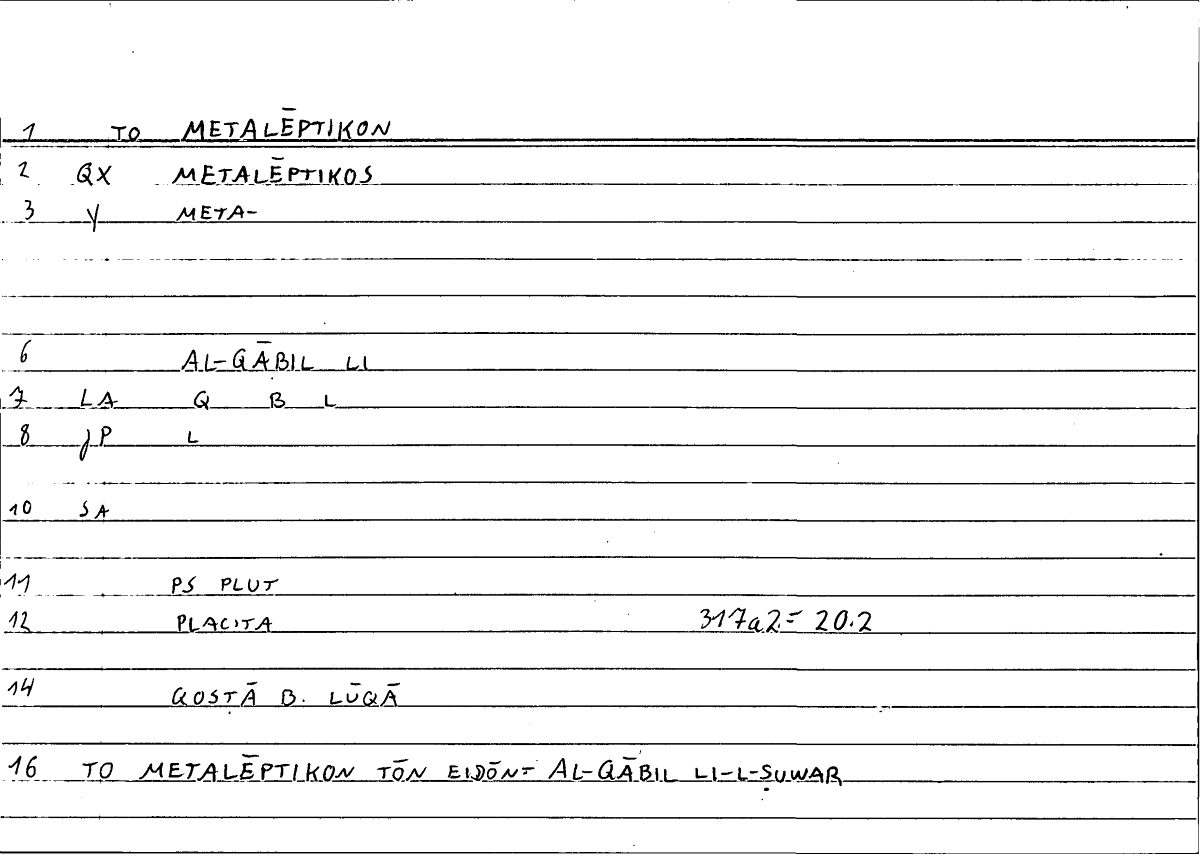 1 TO METALĒPTIKON
2 QX METALĒPTIKOS
3 Y META-
6 AL-QĀBIL LI
7 LA Q B L
8 JP L
10 SA
11 PS PLUT
12 PLACITA 317a2 = 20.2
14 QOSṬĀ B. LŪQĀ
16 TO METALĒPTIKON TŌN EIDŌN = AL-QĀBIL LI-L-ṢUWAR